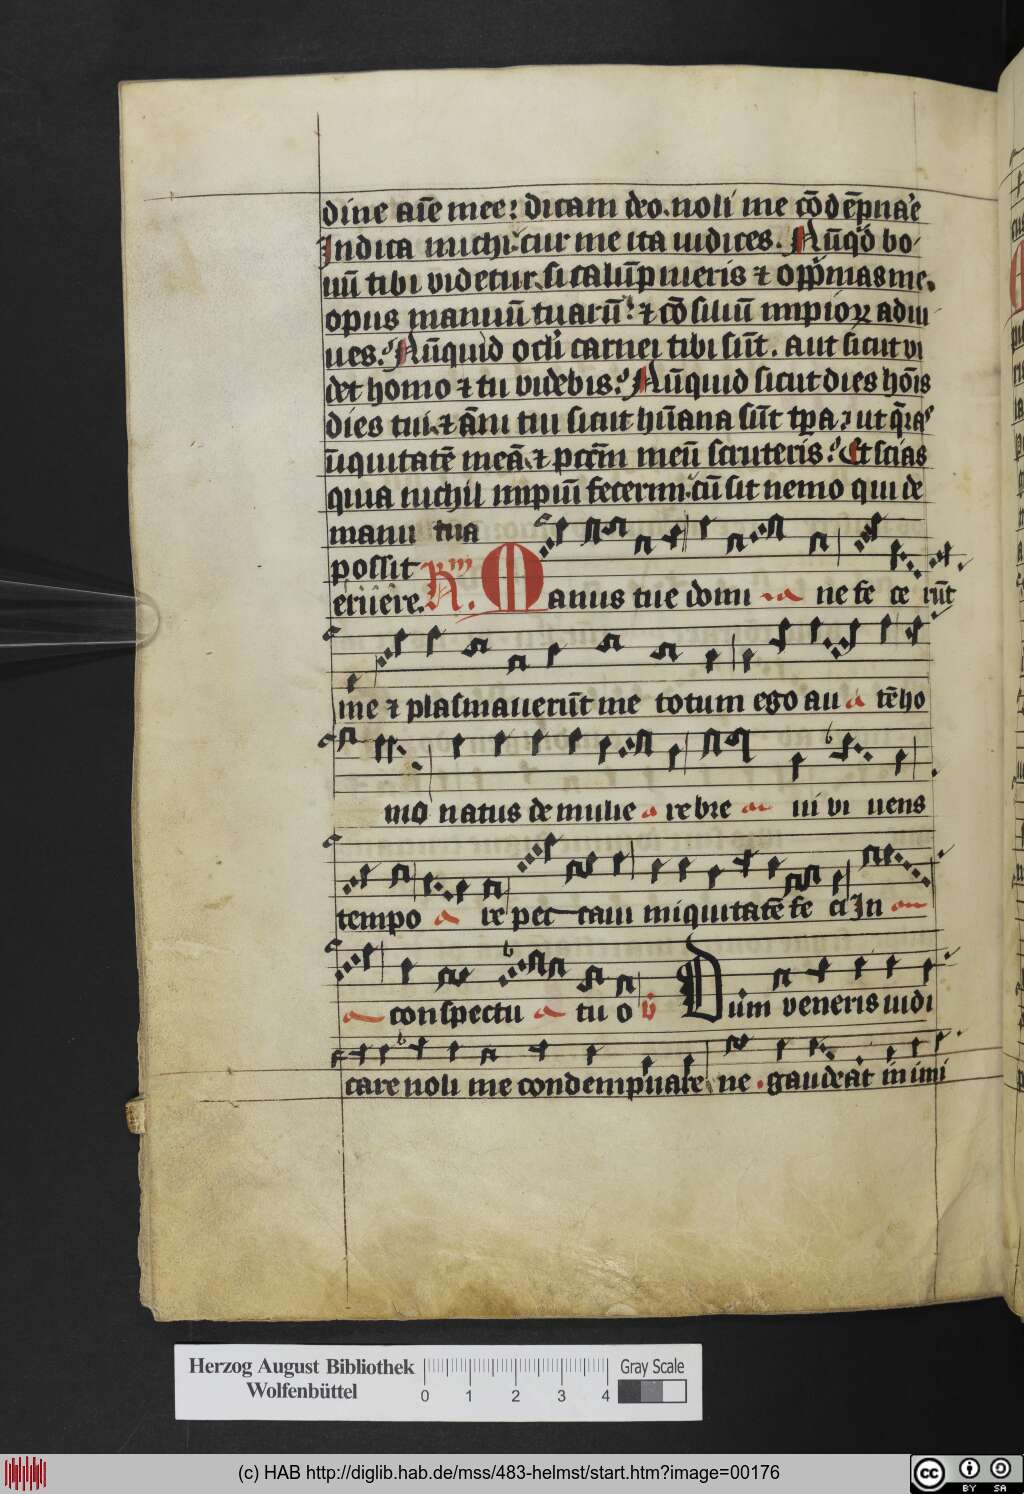 dine aīe mee: dicam deo. noli me cōdēpnaꝛe
Indica michi cur me ita iudices. Nūqͥd bo
nū tibi videtur si calūp nieris ⁊ opp̄mas me.
opus manuū tuarū: ⁊ cōsiliū impioꝝ adiu
ues. Nūquid ocl̓i carnei tibi sūt. aut sicut vi
det homo ⁊ tu videbis: Nūquid sicut dies hoīs
dies tui. ⁊ āni tui sicut hūana sūt tp̄a. ut q̄ras
iniquitatē meā. ⁊ pccm̄ meū scruteris: Et scias
quia nichil impiū fecerim. cū sit nemo qui de
manu tua
possit
eruere. Rm̄. Manus tue domi ne fe ce rūt
me ⁊ plasmauerūt me totum ego au tē ho
mo natus de mulie re bre ui vi uens
tempo re pec caui iniquitatē fe ci In
conspectu tu o v̄ Dum veneris iudi
care noli me condempnare ne gaudeāt inimi
Herzog August Bibliothek
Wolfenbüttel
0 1 2 3 4
Gray Scale
(c) HAB http://diglib.hab.de/mss/483-helmst/start.htm?image=00176
cc BY SA